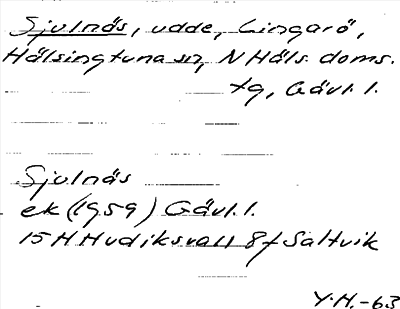 Sjulnäs, udde, Lingarö,
Hälsingtuna sn, N Häls. doms.
tg, Gävl. l.
Sjulnäs
ek (1959) Gävl. l.
15H Hudiksvall 8f Saltvik
Y.H.-63